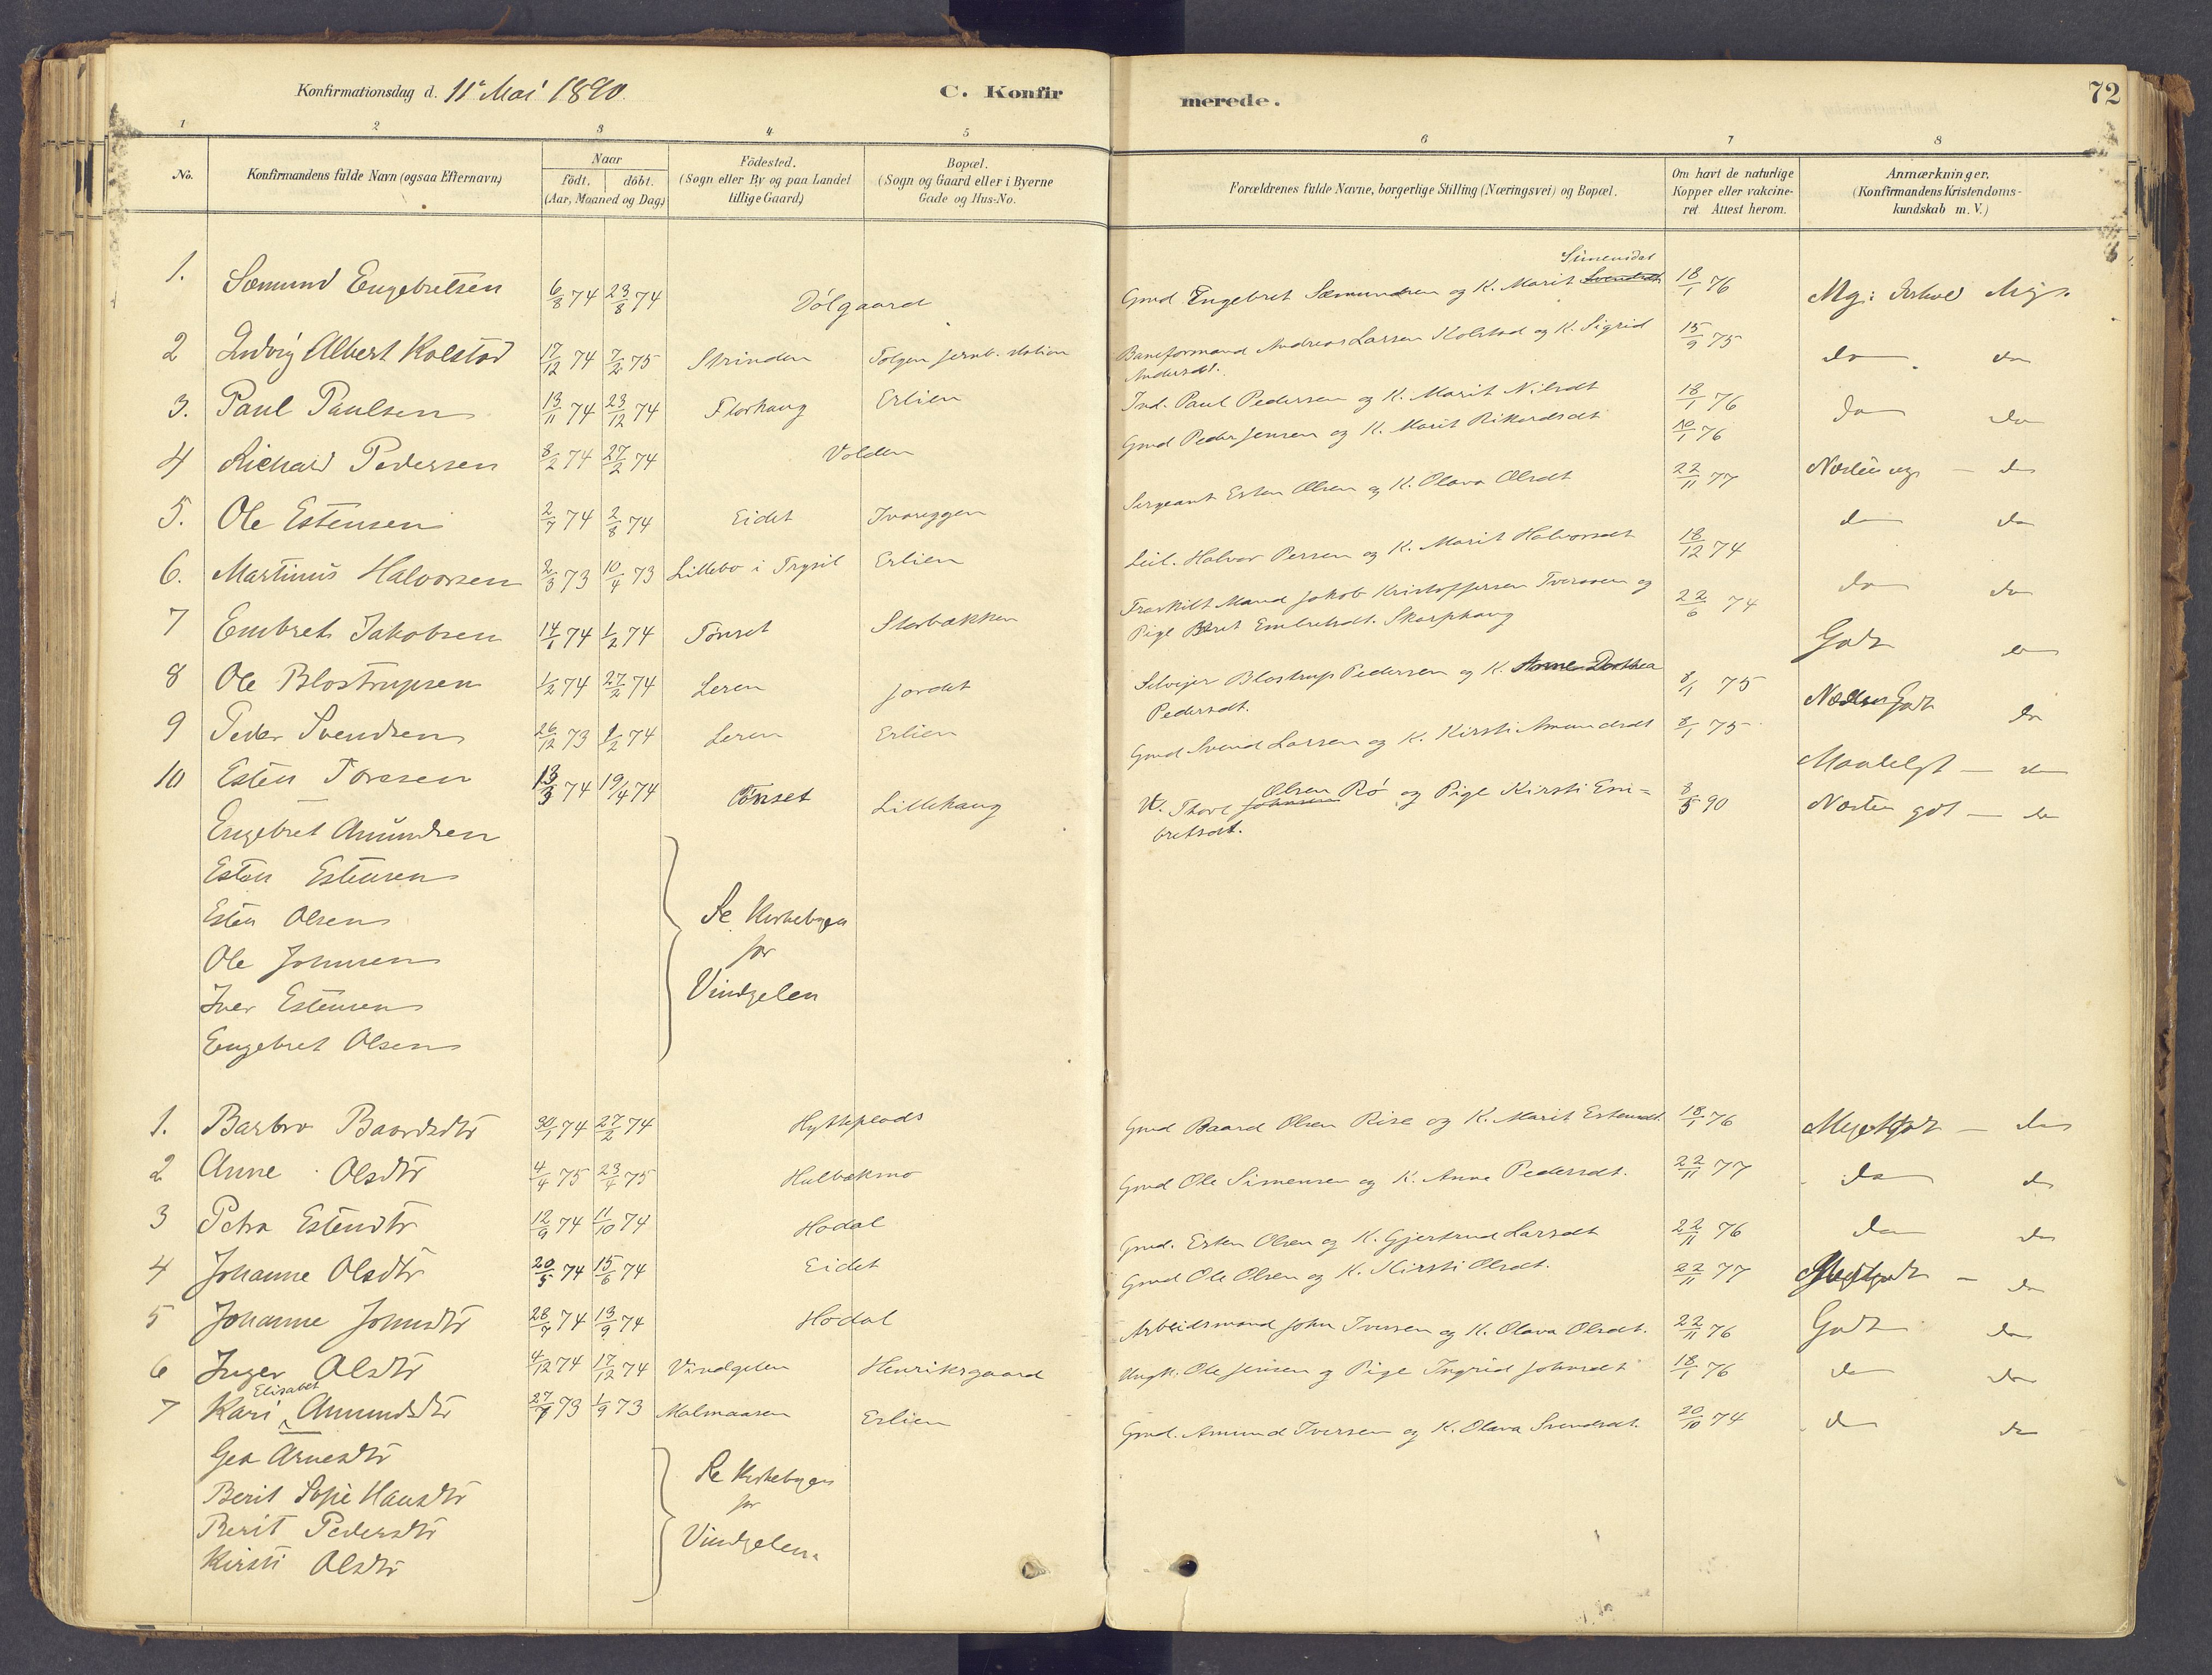 Konfirmationsdag d. 11te Mai 1890.
C. Konfirmerede.
72
1 2 3 4 5 6 7 8
No.
Konfirmandens fulde Navn (ogsaa Efternavn)
Naar
födt. döbt.
(Aar, Maaned og Dag)
Födested.
(Sogn eller By og paa Landet
tillige Gaard)
Bopæl.
(Sogn og Gaard eller i Byerne
Gade og Hus-No.
Forældrenes fulde Navne, borgerlige Stilling (Næringsvei) og Bopæl.
Om havt de naturlige
Kopper eller vakcine-
ret Attest herom.
Anmærkninger.
(Konfirmandens Kristendoms-
kundskab m. V.)
Simensdat
1. Sæmund Engebretsen 6/8 74 23/8 74 Dølgaard Gmd Engebret Sæmundsen og K. Marit Svendsdt 18/1 76 Mg:
2 Ludvig Albert Kolstad 17/12 74 7/2 75 Strinden Tolgen jernb. station Baneformand Andreas Larsen Kolstad og K. Sigrid 15/9 75 do do
Andersdt.
3. Paul Paulsen 13/11 74 23/12 74 Florhaug Erlien Ind. Paul Pedersen og K. Marit Nilsdt 18/1 76 do do
4 Richard Pedersen 8/2 74 27/2 74 Volden Gmd Peder Jensen og K. Marit Rikardsdt 10/1 76 Næsten mg - do
5. Ole Estensen 2/7 74 2/8 74 Eidet Ivareggen Sergeant Esten Olsen og K. Olava Olsdt 22/11 77 do do
6. Martinus Halvorsen 2/3 73 10/4 73 Lillebo i Trysil Erlien Leil. Halvor Persen og K. Marit Halvorsdt 18/12 74 do do
7 Embret Jakobsen 14/1 74 1/2 74 Tönset Storbækken Fraskilt Mand Jakob Kristoffersen Tveraaen og 22/6 74 Godt do
Pige Beret Embretsdt. Skarphaug
8 Ole Blostrupsen 1/2 74 27/2 74 Leren Jordet Selveier Blostrup Pedersen og K. Anne Dorthea 8/1 75 Næsten Godt do
Pedersdt.
9 Peder Svendsen 26/12 73 1/2 74 Leren Erlien Gmd Svend Larsen og K. Kirsti Amundsdt 8/1 75 Maadelgt - do
10 Esten Toresen 13/3 74 19/4 74 Tönset Lillehaug Thore Johnsen Olsen Rø og Pige Kirsti Em- 8/5 90 Næsten godt - do
bretsdt.
Engebret Amundsen
Esten Estensen
Esten Olsen
Ole Johnsen
Iver Estensen
Engebret Olsen
Se Kirkebogen
for
Vindgelen
1. Barbro Baardsdtr 30/1 74 27/2 74 Hytteplads Gmd Baard Olsen Rise og K. Marit Estensdt. 18/1 76 Meget Godt - do
2 Anne Olsdtr 4/4 75 23/4 75 Hulbækmo Gmd Ole Simensen og K. Anne Pedersdt. 22/11 77 do do
3 Petra Estensdtr 12/9 74 11/10 74 Hodal Gmd. Esten Olsen og K. Gjertrud Larsdt 22/11 76 do do
4 Johanne Olsdtr 20/5 74 15/6 74 Eidet Gmd Ole Olsen og K. Kirsti Olsdt. 22/11 77 Meget godt - do
5 Johanne Johnsdtr 28/7 74 13/9 74 Hodal Arbeidsmand John Iversen og K. Olava Olsdt. 22/11 76 Godt do
6 Inger Olsdtr 4/12 74 17/12 74 Vindgelen Henriksgaard Ungk. Ole Jensen og Pige Ingrid Johnsdt 18/1 76 do do
Elisabet
7 Kari Amundsdtr 27/7 73 1/9 73 Malmaasen Erlien Gmd. Amund Iversen og K. Olava Svendsdt. 20/10 74 do do
Gea Arnesdtr
Berit Sofie Hansdtr
Berit Pedersdtr
Kirsti Olsdtr
Se Kirkebogen
for
Vindgelen.